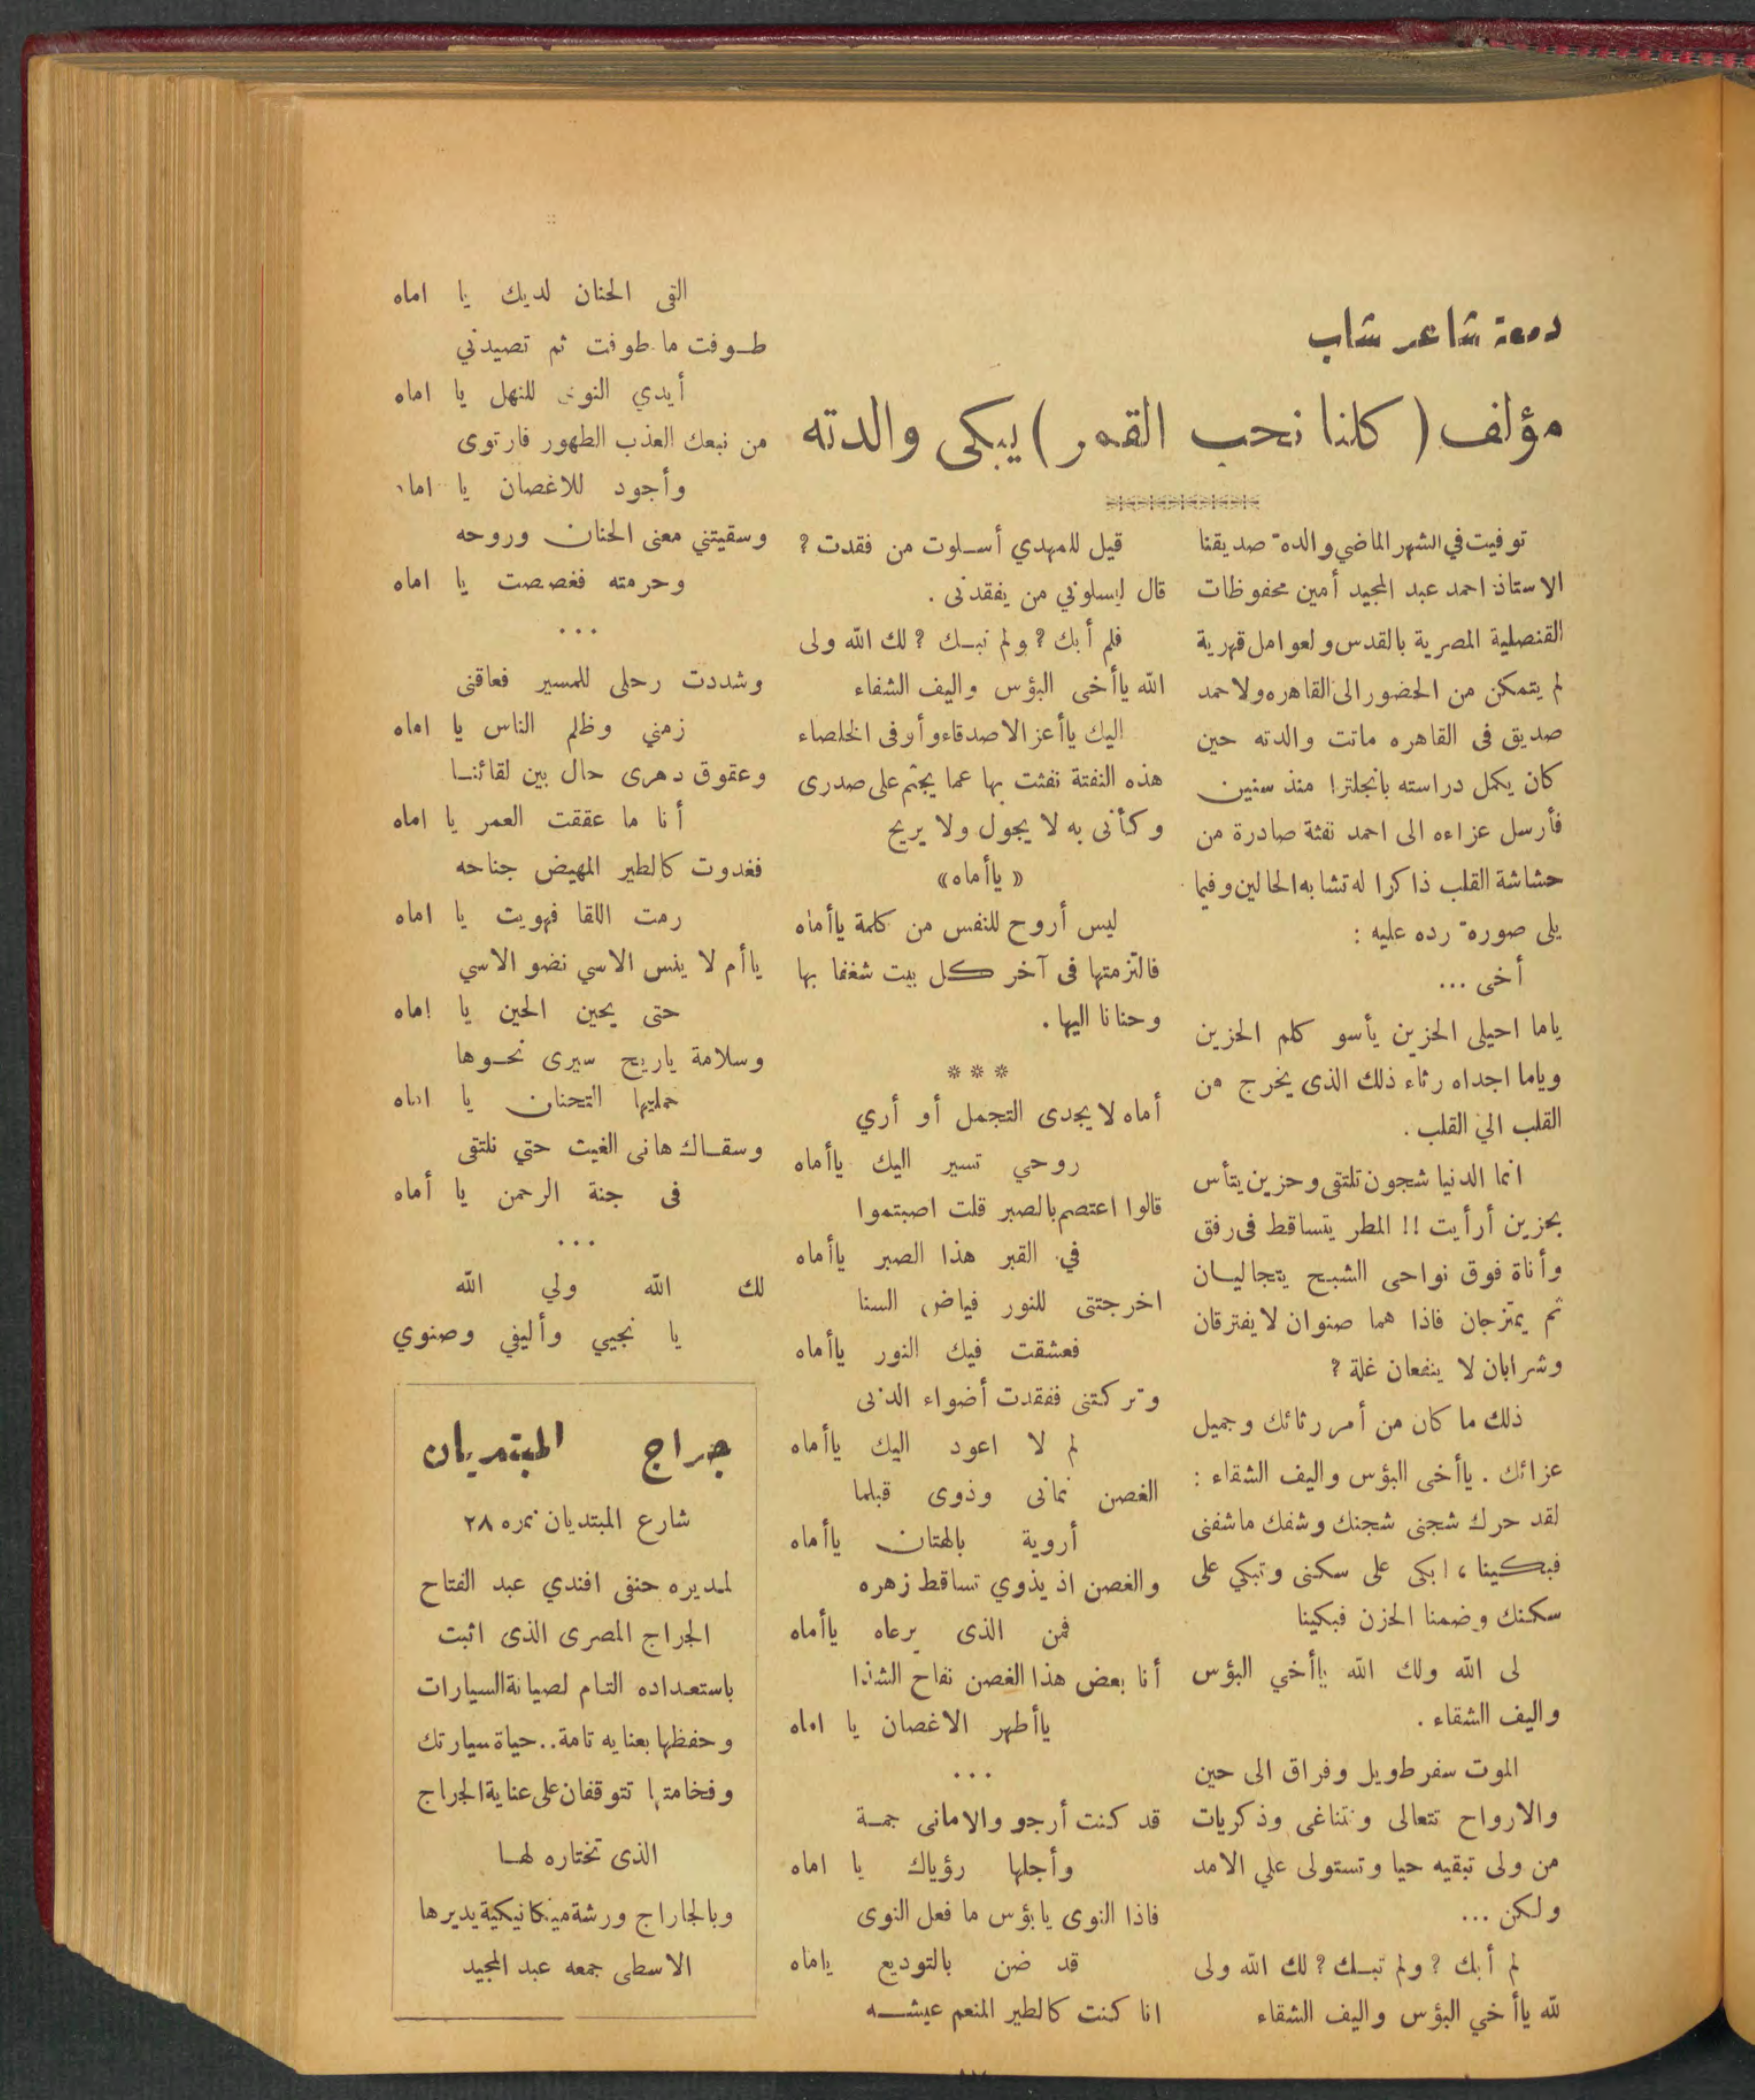 دمعة شاعر شاب
مؤلف ( كلنا نحب القمر ) يبكى والدته
توفيت في الشهر الماضي والدة صديقنا
الاستاذ احمد عبد المجيد أمين محفوظات
القنصلية المصرية بالقدس ولعوامل قهرية
لم يتمكن من الحضور الى القاهره ولاحمد
صديق فى القاهره ماتت والدته حين
كان يكمل دراسته بانجلترا منذ سنين
فأرسل عزاءه الى احمد نفثة صادرة من
حشاشة القلب ذاكرا له تشابه الحالين وفيما
يلى صورة رده عليه :
أخى ...
ياما احيلى الحزين يأسو كلم الحزين
وياما اجداه رثاء ذلك الذى يخرج من
القلب الي القلب .
انما الدنيا شجون تلتقى وحزين يتأس
بحزين أرأيت !! المطر يتساقط فى رفق
وأناة فوق نواحى الشبح يتجاليان
ثم يمتزجان فاذا هما صنوان لا يفترقان
وشرابان لا ينفعان غلة ؟
ذلك ما كان من أمر رثائك وجميل
عزائك . ياأخى البؤس واليف الشقاء :
لقد حرك شجنى شجنك وشفك ماشفنى
فبكينا ، ابكى على سكنى وتبكي على
سكنك وضمنا الحزن فبكينا
لى الله ولك الله ياأخي البؤس
واليف الشقاء .
الموت سفر طويل وفراق الى حين
والارواح تتعالى وتتناغى وذكريات
من ولى تبقيه حيا وتستولى علي الامد
ولكن ...
لم أبك ؟ ولم تبك ؟ لك الله ولى
لله ياأخي البؤس واليف الشقاء
قيل للمهدي أسلوت من فقدت ؟
قال ليسلوني من يفقدنى .
فلم أبك ؟ ولم تبك ؟ لك الله ولى
الله ياأخى البؤس واليف الشفاء
اليك ياأعز الاصدقاء وأوفى الخلصاء
هذه النفتة نفثت بها عما يجثم على صدرى
وكأنى به لا يجول ولا يريح
« ياأماه»
ليس أروح للنفس من كلمة ياأماه
فالتزمتها فى آخر كل بيت شغفا بها
وحنانا اليها .
***
أماه لا يجدى التجمل أو أري
روحي تسير اليك ياأماه
قالوا اعتصم بالصبر قلت اصبتموا
في القبر هذا الصبر ياأماه
اخرجتنى للنور فياض السنا
فعشقت فيك النور ياأماه
وتركتنى ففقدت أضواء الدنى
لم لا اعود اليك ياأماه
الغصن نمانى وذوى قبلما
أروية بالهتان ياأماه
والغصن اذ يذوي تساقط زهره
فمن الذى يرعاه ياأماه
أنا بعض هذا الغصن نفاح الشذا
ياأطهر الاغصان يا اماه
...
قد كنت أرجو والامانى جمة
وأجلها رؤياك يا اماه
فاذا النوى يابؤس ما فعل النوى
قد ضن بالتوديع ياماه
انا كنت كالطير المنعم عيشه
القى الحنان لديك يا اماه
طوفت ما طوفت ثم تصيدني
أيدي النوى للنهل يا اماه
من نبعك العذب الطهور فارتوى
وأجود للاغصان يا اماه
وسقيتني معنى الحنان وروحه
وحرمته فغصصت يا اماه
...
وشددت رحلى للمسير فعاقنى
زمني وظلم الناس يا اماه
وعقوق دهرى حال بين لقائنا
أنا ما عققت العمر يا اماه
فغدوت كالطير المهيض جناحه
رمت اللقا فهويت يا اماه
ياأم لا ينس الاسي نضو الاسي
حتى يحين الحين يا اماه
وسلامة ياريح سيرى نحوها
حمليها التحنان يا اماه
وسقاك هانى الغيث حتي نلتقى
فى جنة الرحمن يا أماه
...
لك الله ولي الله
يا نجيي وأليفي وصنوي
جراج المبتديان
شارع المبتديان نمره ٢٨
لمديره حنفى افندي عبد الفتاح
الجراج المصرى الذى اثبت
باستعداده التام لصيانة السيارات
وحفظها بعنايه تامة.. حياة سيارتك
وفخامتها تتوقفان على عناية الجراج
الذى تختاره لها
وبالجاراج ورشة ميكانيكية يديرها
الاسطى جمعه عبد المجيد